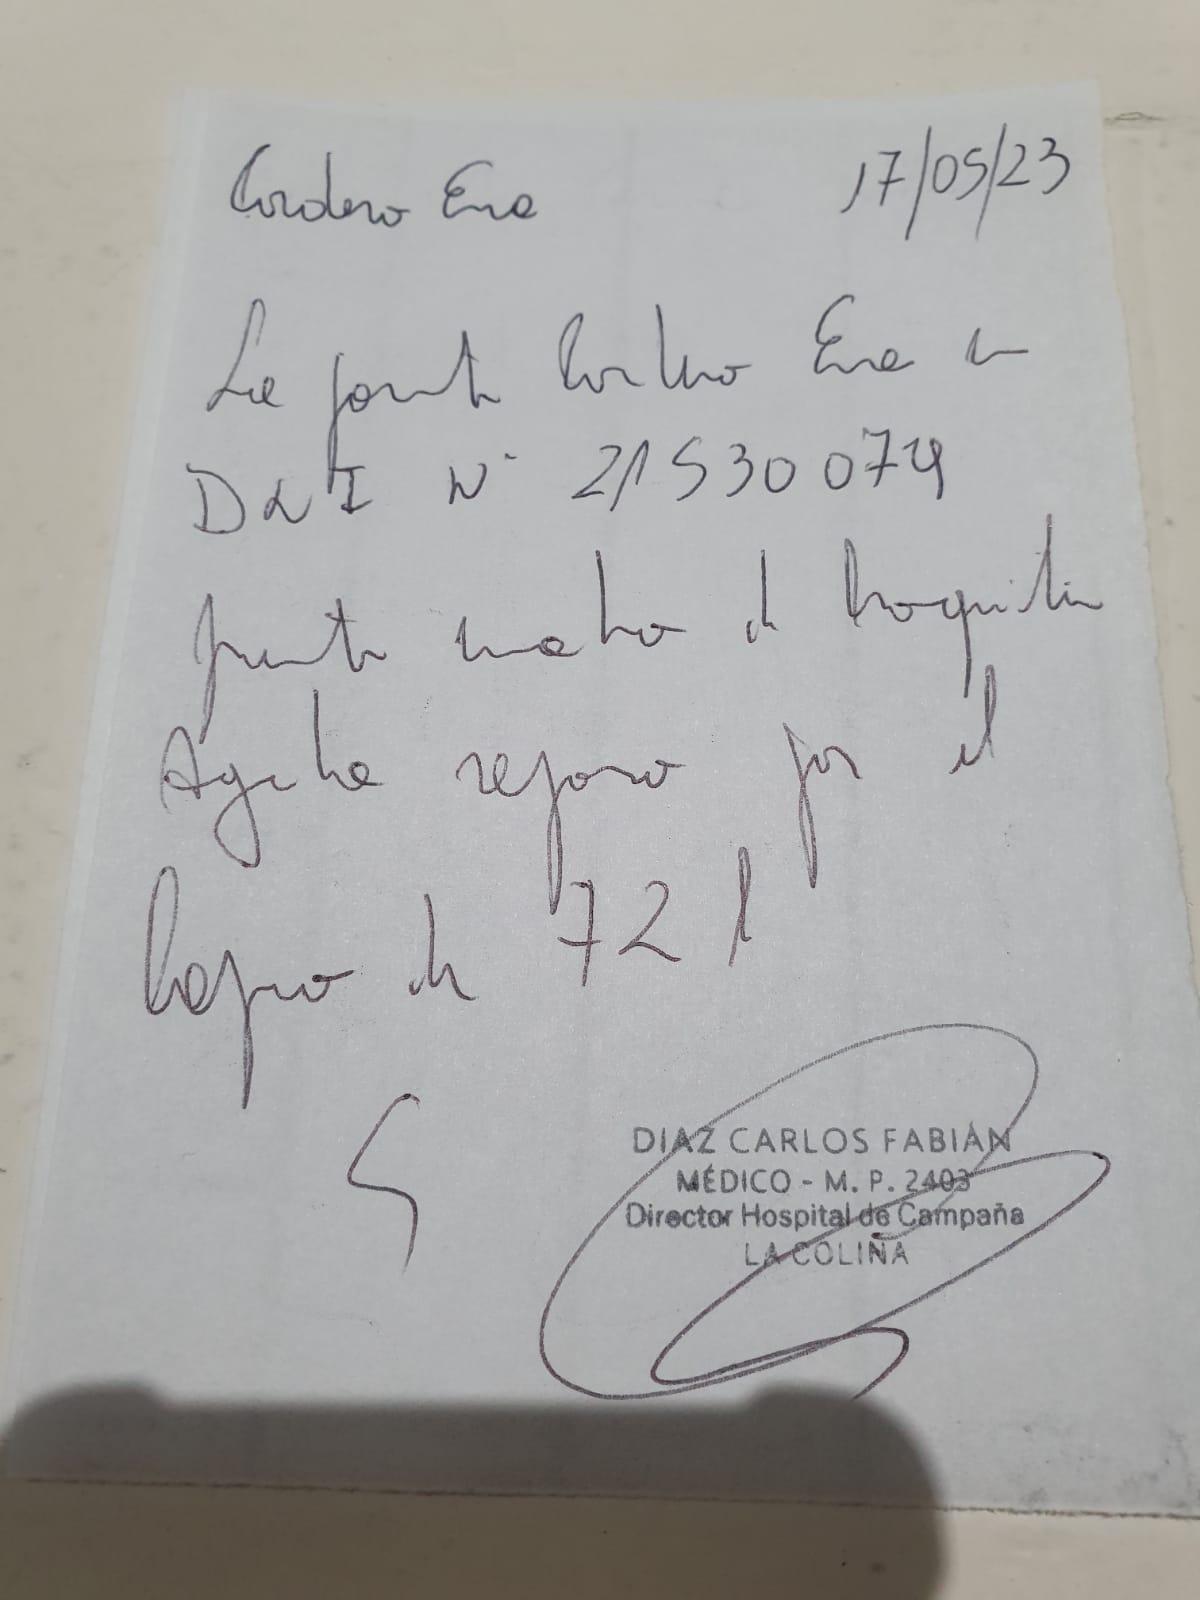 Cordero Ema 17/05/23
La paciente Cordero Ema con
DNI N° 21530074
presenta cuadro de Bronquitis
Aguda reposo por el
lapso de 72 h
DIAZ CARLOS FABIÁN
MÉDICO - M. P. 2403
Director Hospital de Campaña
LA COLINA